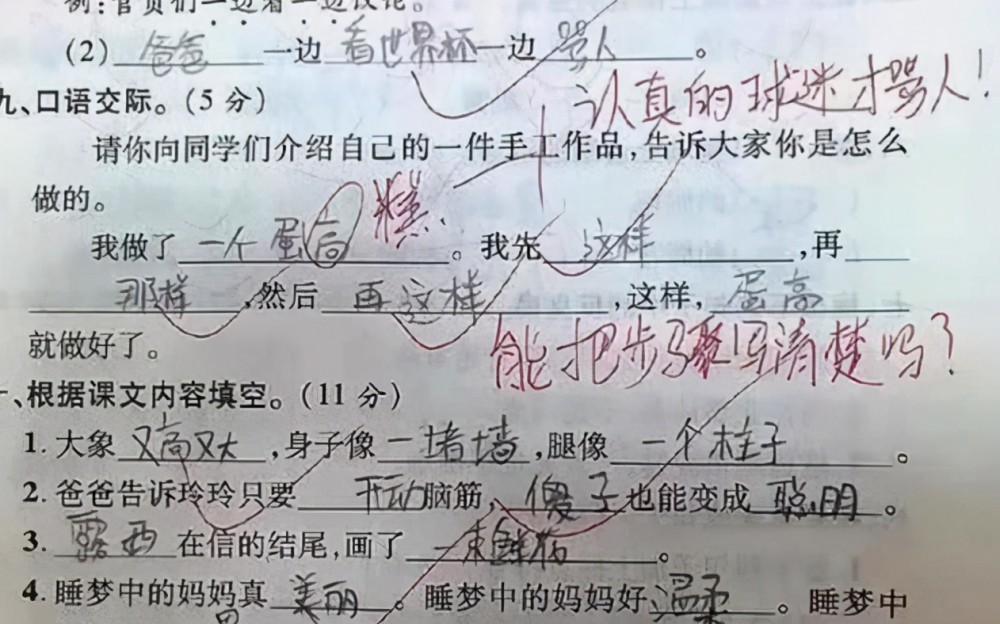 例:官员们一边看一边议论。
(2) 爸爸 一边 看世界杯 一边 骂人 。
认真的球迷才骂人!
九、口语交际。(5 分)
请你向同学们介绍自己的一件手工作品,告诉大家你是怎么
做的。
糕.
我做了 一个蛋高 。我先 这样 ,再
那样 ,然后 再这样 ,这样, 蛋高
就做好了。
能把步骤写清楚吗?
、根据课文内容填空。(11 分)
1. 大象 又高又大 ,身子像 一堵墙 ,腿像 一个柱子 。
2. 爸爸告诉玲玲只要 开动 脑筋, 傻子 也能变成 聪明 。
3. 露西 在信的结尾,画了 一束鲜花 。
4. 睡梦中的妈妈真 美丽 。睡梦中的妈妈好 温柔 。睡梦中